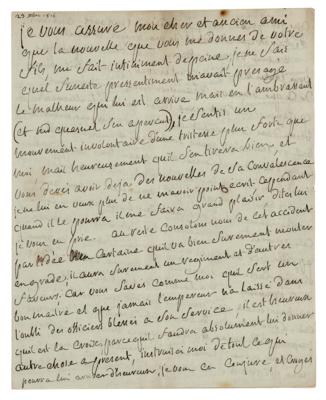 je vous assure mon cher et ancien ami
que la nouvelle que vous me donnes de votre
fils, me fait infiniment de peine, je ne sais
quel funeste pressentiment m'avait presagé
le malheur qui lui est arrivé mais en l'embrassant
(et sud quesnel s'en apercut), je sentis un
mouvement involontaire d'une tristesse plus forte que
moi mais heureusement qu'il s'en tirera bien, et
vous deves avoir deja des nouvelles de sa convalescence
je ne lui en veux plus de ne m'avoir point ecrit cependant
quand il le pourra il me faira grand plaisir dites lui
je vous en prie. au reste consolons nous de cet accident
par l'idée certaine qu'il va bien surement monter
en grade, il aura surement un regiment et d'autres
faveurs. car vous saves comme moi qu'il sert un
bon maitre et que jamais l'empereur n'a laissé dans
l'oubli des officiers blessés a son service, il est heureux
qu'il est la croix, parce qu'il faudra absolument lui donner
autre chose a present, instruisez moi de tout ce qui
pourra lui arriver d'heureux, je vous en conjure, et croyes